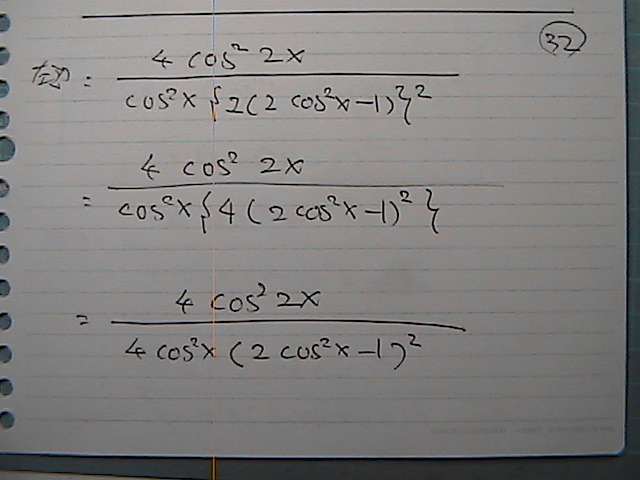 ㉜
左辺 = 4 cos² 2x
cos²x {2(2 cos²x−1)}²
= 4 cos² 2x
cos²x {4(2cos²x−1)²}
= 4 cos² 2x
4 cos²x (2 cos²x−1)²